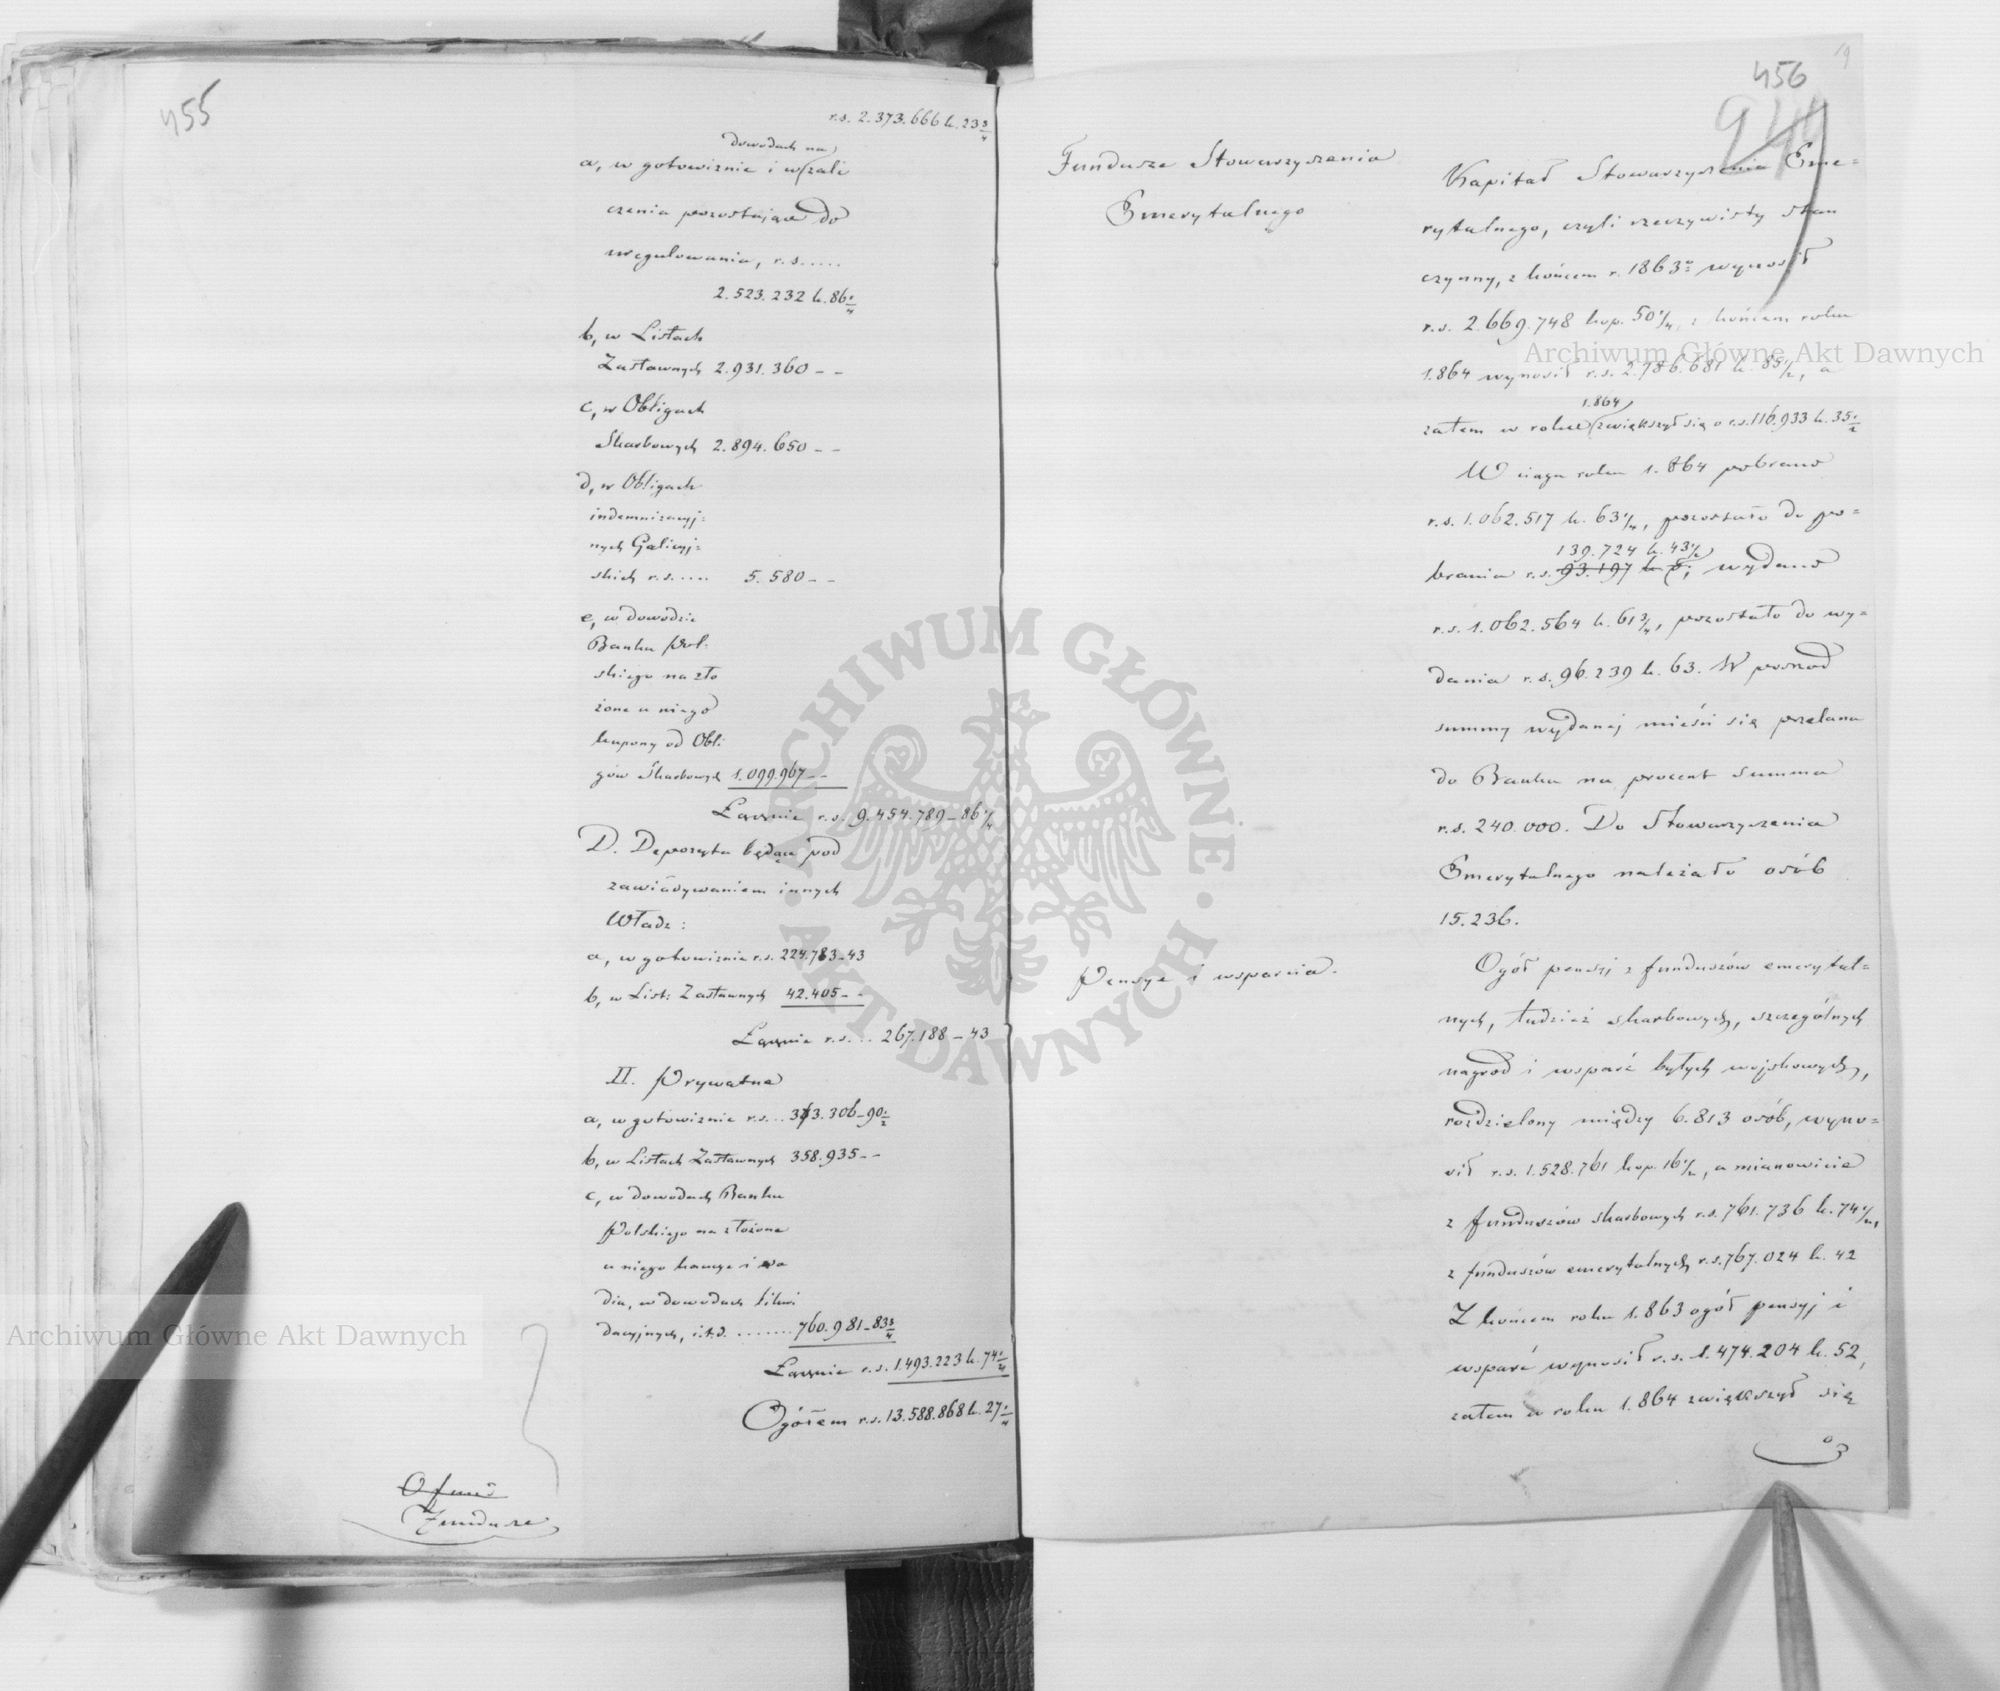 455
r.s. 2.373.666 k. 23 3/4
dowodach na
a, w gotowiznie i w zali
czenia pozostające do
uregulowania, r.s.....
2.523.232 k. 86 1/4
b, w Listach
Zastawnych 2.931.360 – –
c, w Obligach
Skarbowych 2.894.650 – –
d, w Obligach
indemnizacyj=
nych Galicyj=
skich r.s..... 5.580 – –
e, w dowodzie
Banku Pol-
skiego na zło
żone u niego
kupony od Obli
gów Skarbowych 1.099.967 – –
Łącznie r.s. 9.454.789 – 86 1/4
D. Depozyta będące pod
zawiadywaniem innych
Władz:
a, w gotowiznie r.s. 224.783–43
b, w List: Zastawnych 42.405 – –
Łącznie r.s.... 267.188 – 43
II. Prywatne
a, w gotowiznie r.s... 373.306–90 1/2
b, w Listach Zastawnych 358.935 – –
c, w dowodach Banku
Polskiego na złożone
u niego kaucye i wa
dia, w dowodach likwi
dacyjnych, i.t.d. ........ 760.981–83 3/4
Łącznie r.s. 1.493.223 k. 74 1/4
Ogółem r.s. 13.588.868 k. 27 1/4
Fundusze
456
Fundusze Stowarzyszenia
Emerytalnego
Kapitał Stowarzyszenia Eme=
rytalnego, czyli rzeczywisty stan
czynny, z końcem r. 1863 wynosił
r.s. 2.669.748 kop. 50 1/4, z końcem roku
1.864 wynosił r.s. 2.786.681 k. 85 1/2, a
1.864
zatem w roku zwiększył się o r.s. 116.933 k. 35 1/2
W ciągu roku 1.864 pobrano
r.s. 1.062.517 k. 63 1/4, pozostało do po=
139.724 k. 43 1/2
brania r.s. 93.197 k. 8; wydano
r.s. 1.062.564 k. 61 3/4, pozostało do wy=
dania r.s. 96.239 k. 63. W posrod
summy wydanej mieści się przelana
do Banku na procent summa
r.s. 240.000. Do Stowarzyszenia
Emerytalnego należało osób
15.236.
Pensye i wsparcia.
Ogół pensyj z funduszów emerytal=
nych, tudzież skarbowych, szczególnych
nagrod i wsparć byłych wojskowych,
rozdzielony między 6.813 osób, wyno=
sił r.s. 1.528.761 kop. 16 1/2, a mianowicie
z funduszów skarbowych r.s. 761.736 k. 74 1/2,
z funduszów emerytalnych r.s. 767.024 k. 42
Z końcem roku 1.863 ogół pensyj i
wsparć wynosił r.s. 1.474.204 k. 52,
zatem w roku 1.864 zwiększył się
o
Archiwum Główne Akt Dawnych
Archiwum Główne Akt Dawnych
ARCHIWUM GŁÓWNE · AKT DAWNYCH ·